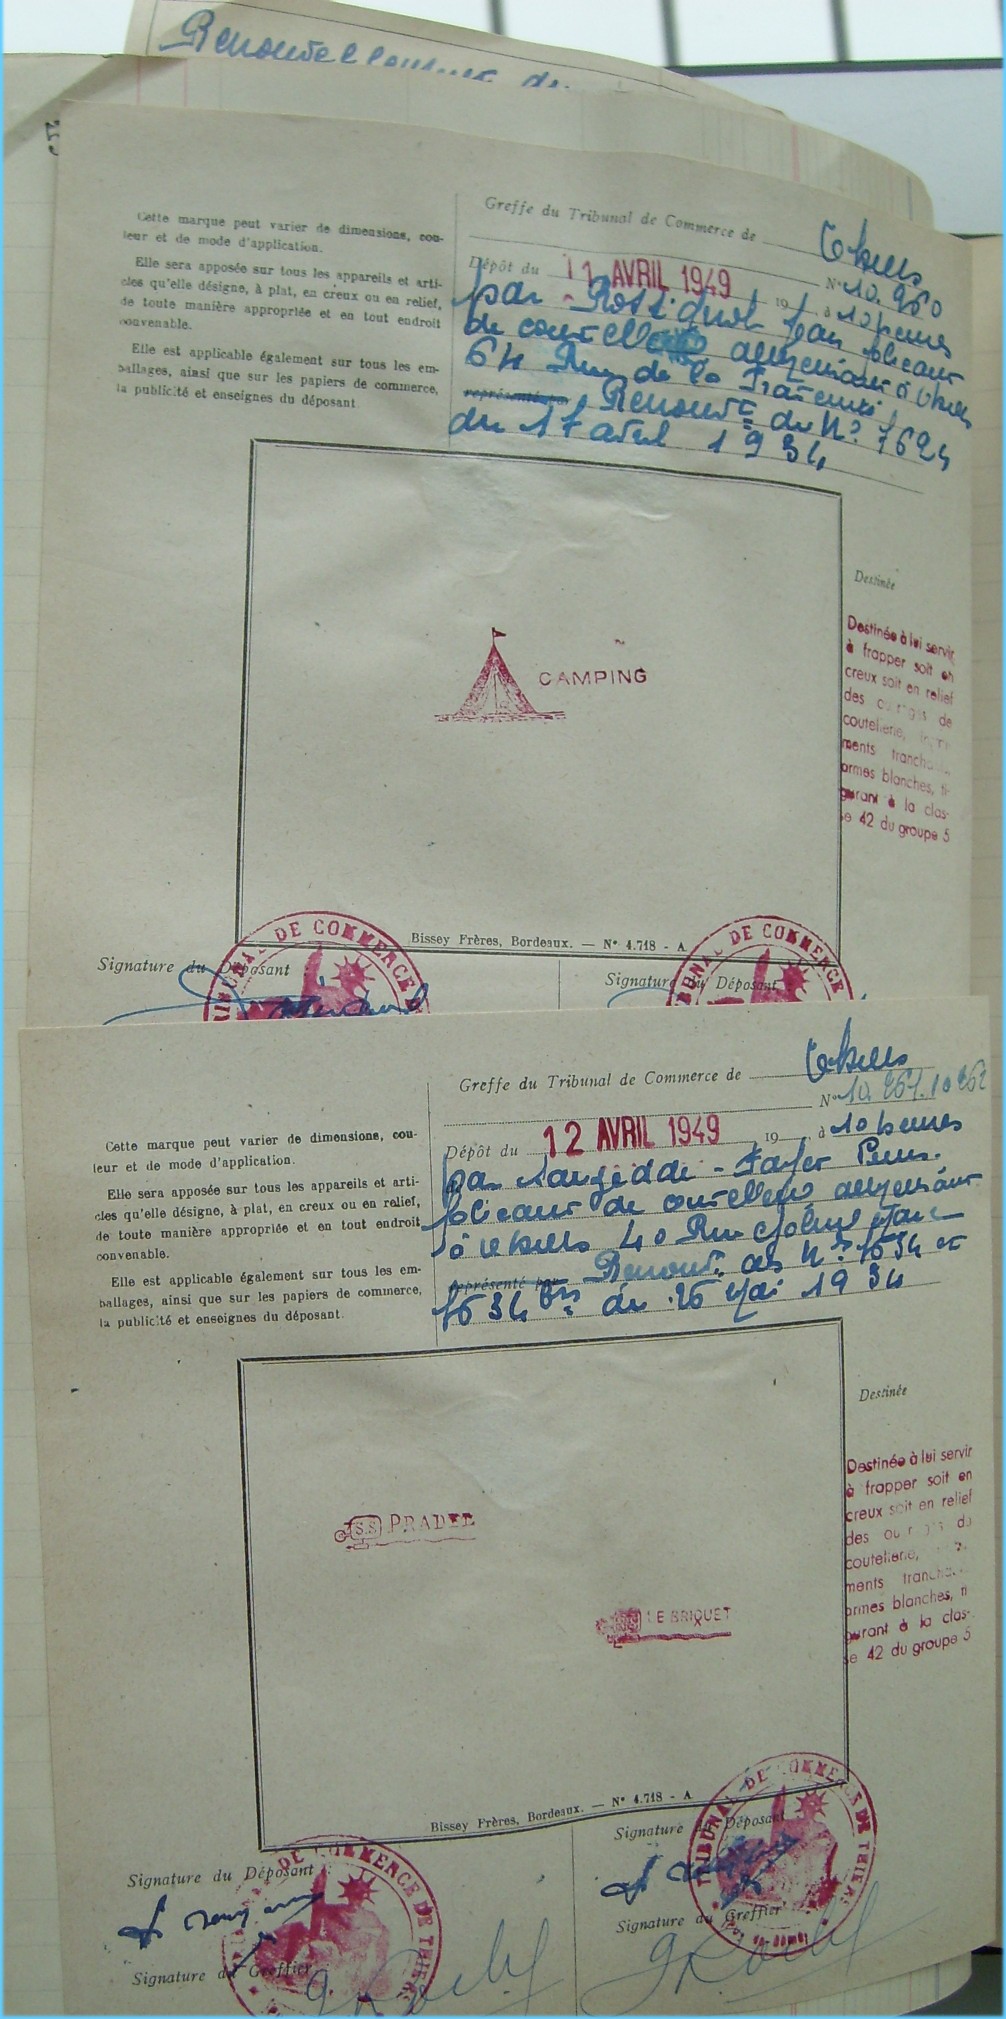 Renouvellement de
Cette marque peut varier de dimensions, cou-
leur et de mode d'application.
Elle sera apposée sur tous les appareils et arti-
cles qu'elle désigne, à plat, en creux ou en relief,
de toute manière appropriée et en tout endroit
convenable.
Elle est applicable également sur tous les em-
ballages, ainsi que sur les papiers de commerce,
la publicité et enseignes du déposant
Greffe du Tribunal de Commerce de Thiers
N° 10.260
Dépôt du 11 AVRIL 1949 19 à 10 heures
par fabricant
de coutellerie demeurant à Thiers
64 Rue de la
représenté par Renouvt du N° 1624
du 17 avril 1934
CAMPING
Destinée
Destinée à lui servir
à frapper soit en
creux soit en relief
des de
coutellerie,
ments
armes blanches, fi-
gurant à la clas-
se 42 du groupe 5
Bissey Frères, Bordeaux. — N° 4.718 - A
Signature du Déposant
Signature du Déposant
TRIBUNAL DE COMMERCE
TRIBUNAL DE COMMERCE
Greffe du Tribunal de Commerce de Thiers
N° 10.261.10262
Cette marque peut varier de dimensions, cou-
leur et de mode d'application.
Elle sera apposée sur tous les appareils et arti-
cles qu'elle désigne, à plat, en creux ou en relief,
de toute manière appropriée et en tout endroit
convenable.
Elle est applicable également sur tous les em-
ballages, ainsi que sur les papiers de commerce,
la publicité et enseignes du déposant.
Dépôt du 12 AVRIL 1949 19 à 10 heures
par
fabricant de coutellerie demeurant
à Thiers 40 Rue
représenté par Renouvt des N° 1634 et
1634 bis du 26 Mai 1934
S.S PRADEL
LE BRIQUET
Destinée
Destinée à lui servir
à frapper soit en
creux soit en relief
des
coutellerie,
ments
armes blanches, fi
gurant à la clas-
se 42 du groupe 5
Bissey Frères, Bordeaux. — N° 4.718 - A
Signature du Déposant
Signature du Déposant
Signature du Greffier
Signature du Greffier
DE COMMERCE DE THIERS
TRIBUNAL DE COMMERCE DE THIERS